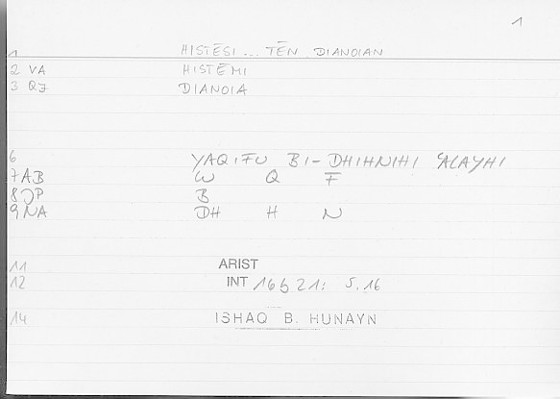 1
1 HISTĒSI ... TĒN DIANOIAN
2 VA HISTĒMI
3 QJ DIANOIA
6 YAQIFU BI-DHIHNIHI ʿALAYHI
7 AB W Q F
8 JP B
9 NA DH H N
11 ARIST
12 INT 16b21: 5.16
14 ISHAQ B. HUNAYN